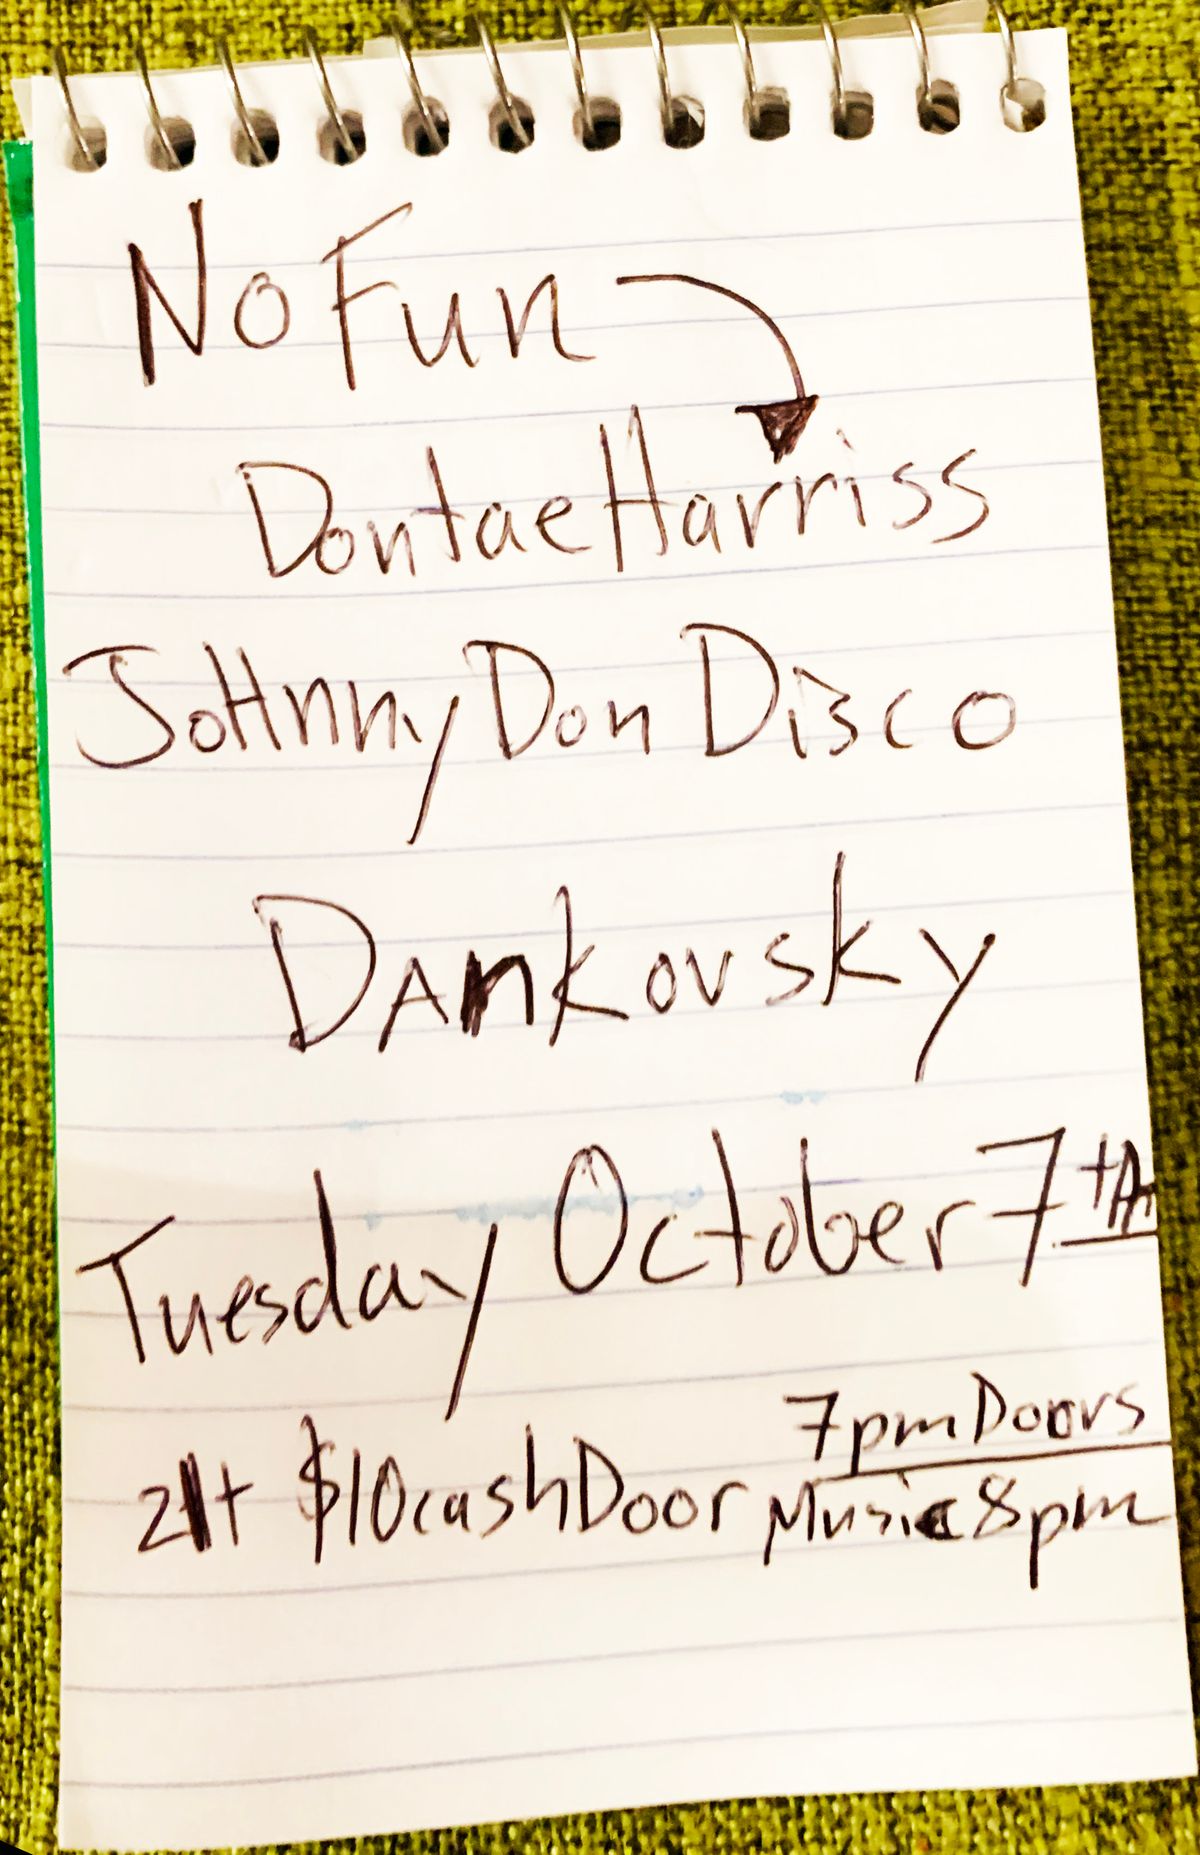 No Fun
Dontae Harriss
JoHnny Don Disco
DAnkovsky
Tuesday October 7th
21+ $10 cash Door
7pm Doors
Music 8pm